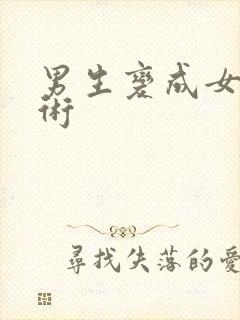 男生變成女
術
尋找失落的愛